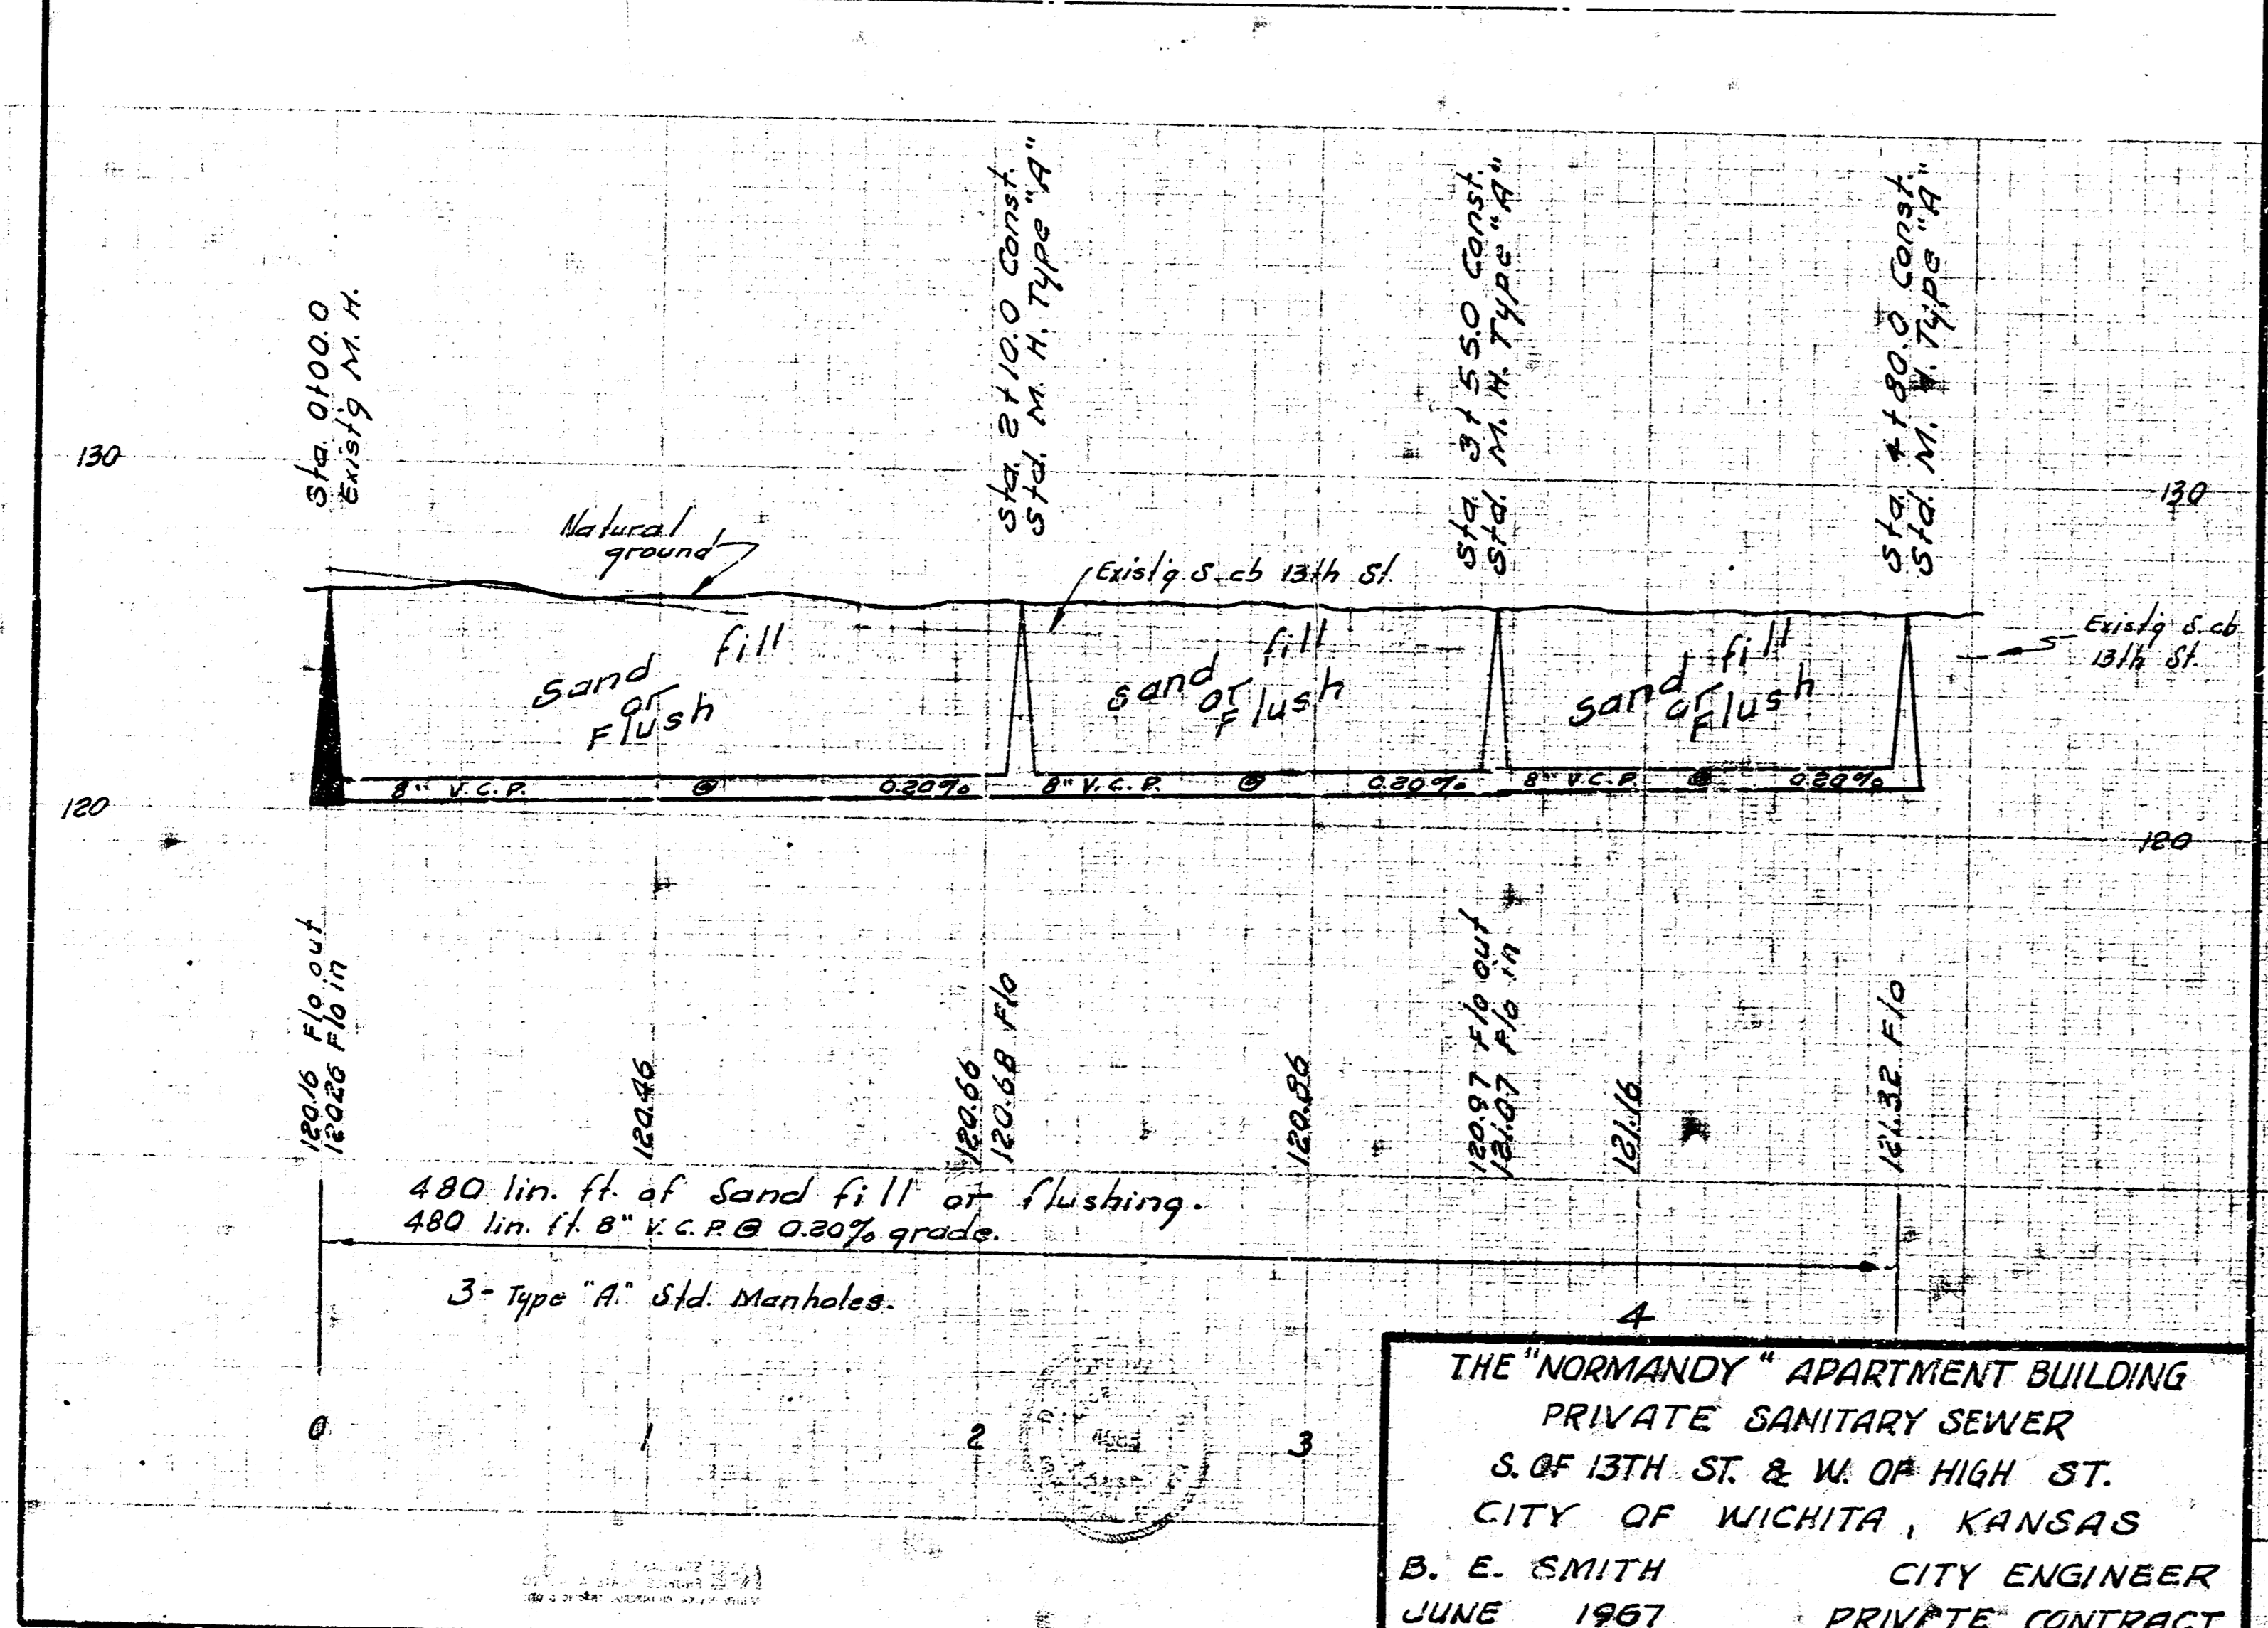 Sta. 0+00.0
Exist'g M. H.
Sta. 2+10.0 Const.
Std. M. H. Type "A"
Sta. 3+55.0 Const.
Std. M. H. Type "A"
Sta. 4+80.0 Const.
Std. M. H. Type "A"
130
130
Natural
ground
Exist'g S. cb 13th St.
Exist'g S. cb
13th St.
Sand fill
or
Flush
Sand fill
or
Flush
Sand fill
or
Flush
8" V.C.P. @ 0.20%
8" V.C.P. @ 0.20%
8" V.C.P. @ 0.20%
120
120
120.16 Flo out
120.26 Flo in
120.46
120.66
120.68 Flo
120.86
120.97 Flo out
121.07 Flo in
121.16
121.32 Flo
480 lin. ft. of Sand fill or flushing.
480 lin. ft. 8" V.C.P. @ 0.20% grade.
3- Type "A" Std. Manholes.
0
1
2
3
4
THE "NORMANDY" APARTMENT BUILDING
PRIVATE SANITARY SEWER
S. OF 13TH ST. & W. OF HIGH ST.
CITY OF WICHITA, KANSAS
B. E. SMITH CITY ENGINEER
JUNE 1967 PRIVATE CONTRACT